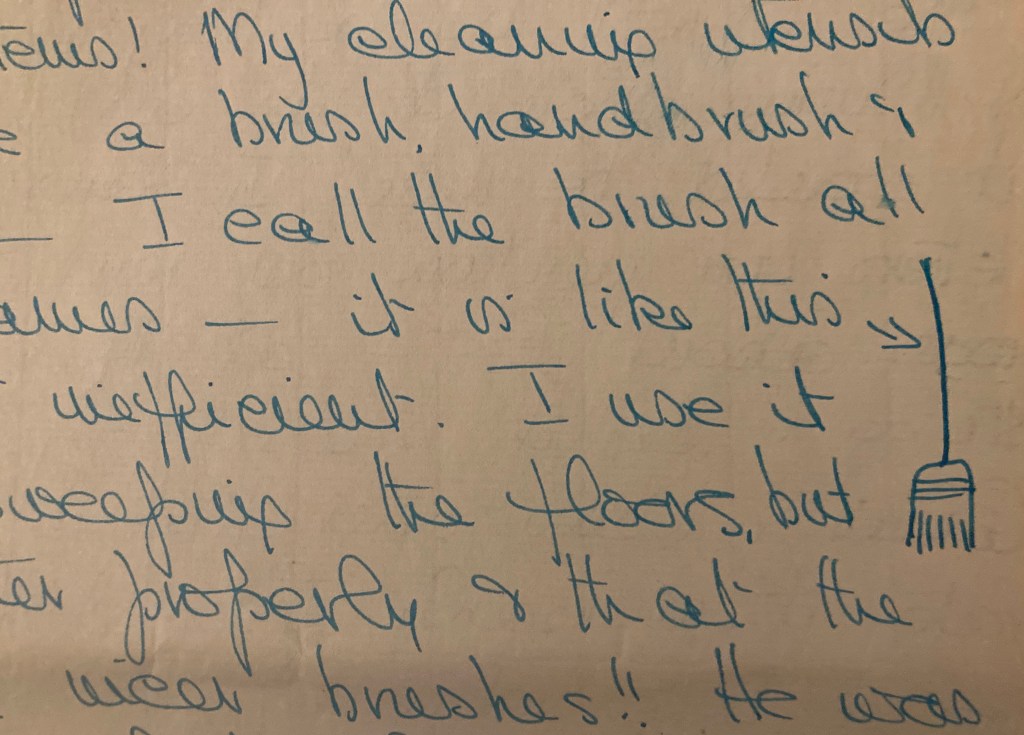 tems! My cleaning utensils
a brush, handbrush &
— I call the brush all
ames — it is like this
inefficient. I use it
sweeping the floors, but
ter properly & that the
wear brushes!! He was